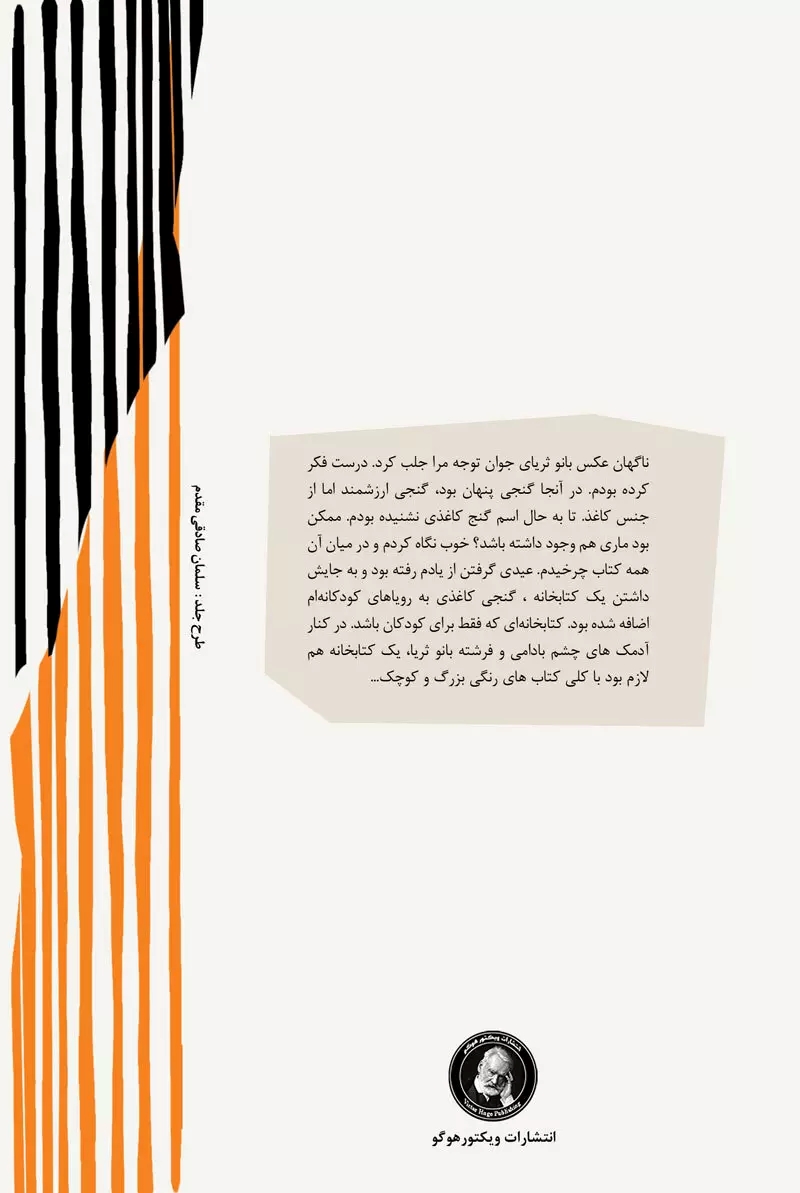 ناگهان عکس بانو ثریای جوان توجه مرا جلب کرد. درست فکر
کرده بودم. در آنجا گنجی پنهان بود، گنجی ارزشمند اما از
جنس کاغذ. تا به حال اسم گنج کاغذی نشنیده بودم. ممکن
بود ماری هم وجود داشته باشد؟ خوب نگاه کردم و در میان آن
همه کتاب چرخیدم. عیدی گرفتن از یادم رفته بود و به جایش
داشتن یک کتابخانه ، گنجی کاغذی به رویاهای کودکانه‌ام
اضافه شده بود. کتابخانه‌ای که فقط برای کودکان باشد. در کنار
آدمک های چشم بادامی و فرشته بانو ثریا، یک کتابخانه هم
لازم بود با کلی کتاب های رنگی بزرگ و کوچک...
طرح جلد : سلمان صادقی مقدم
انتشارات ویکتور هوگو
Victor Hugo Publishing
انتشارات ویکتورهوگو